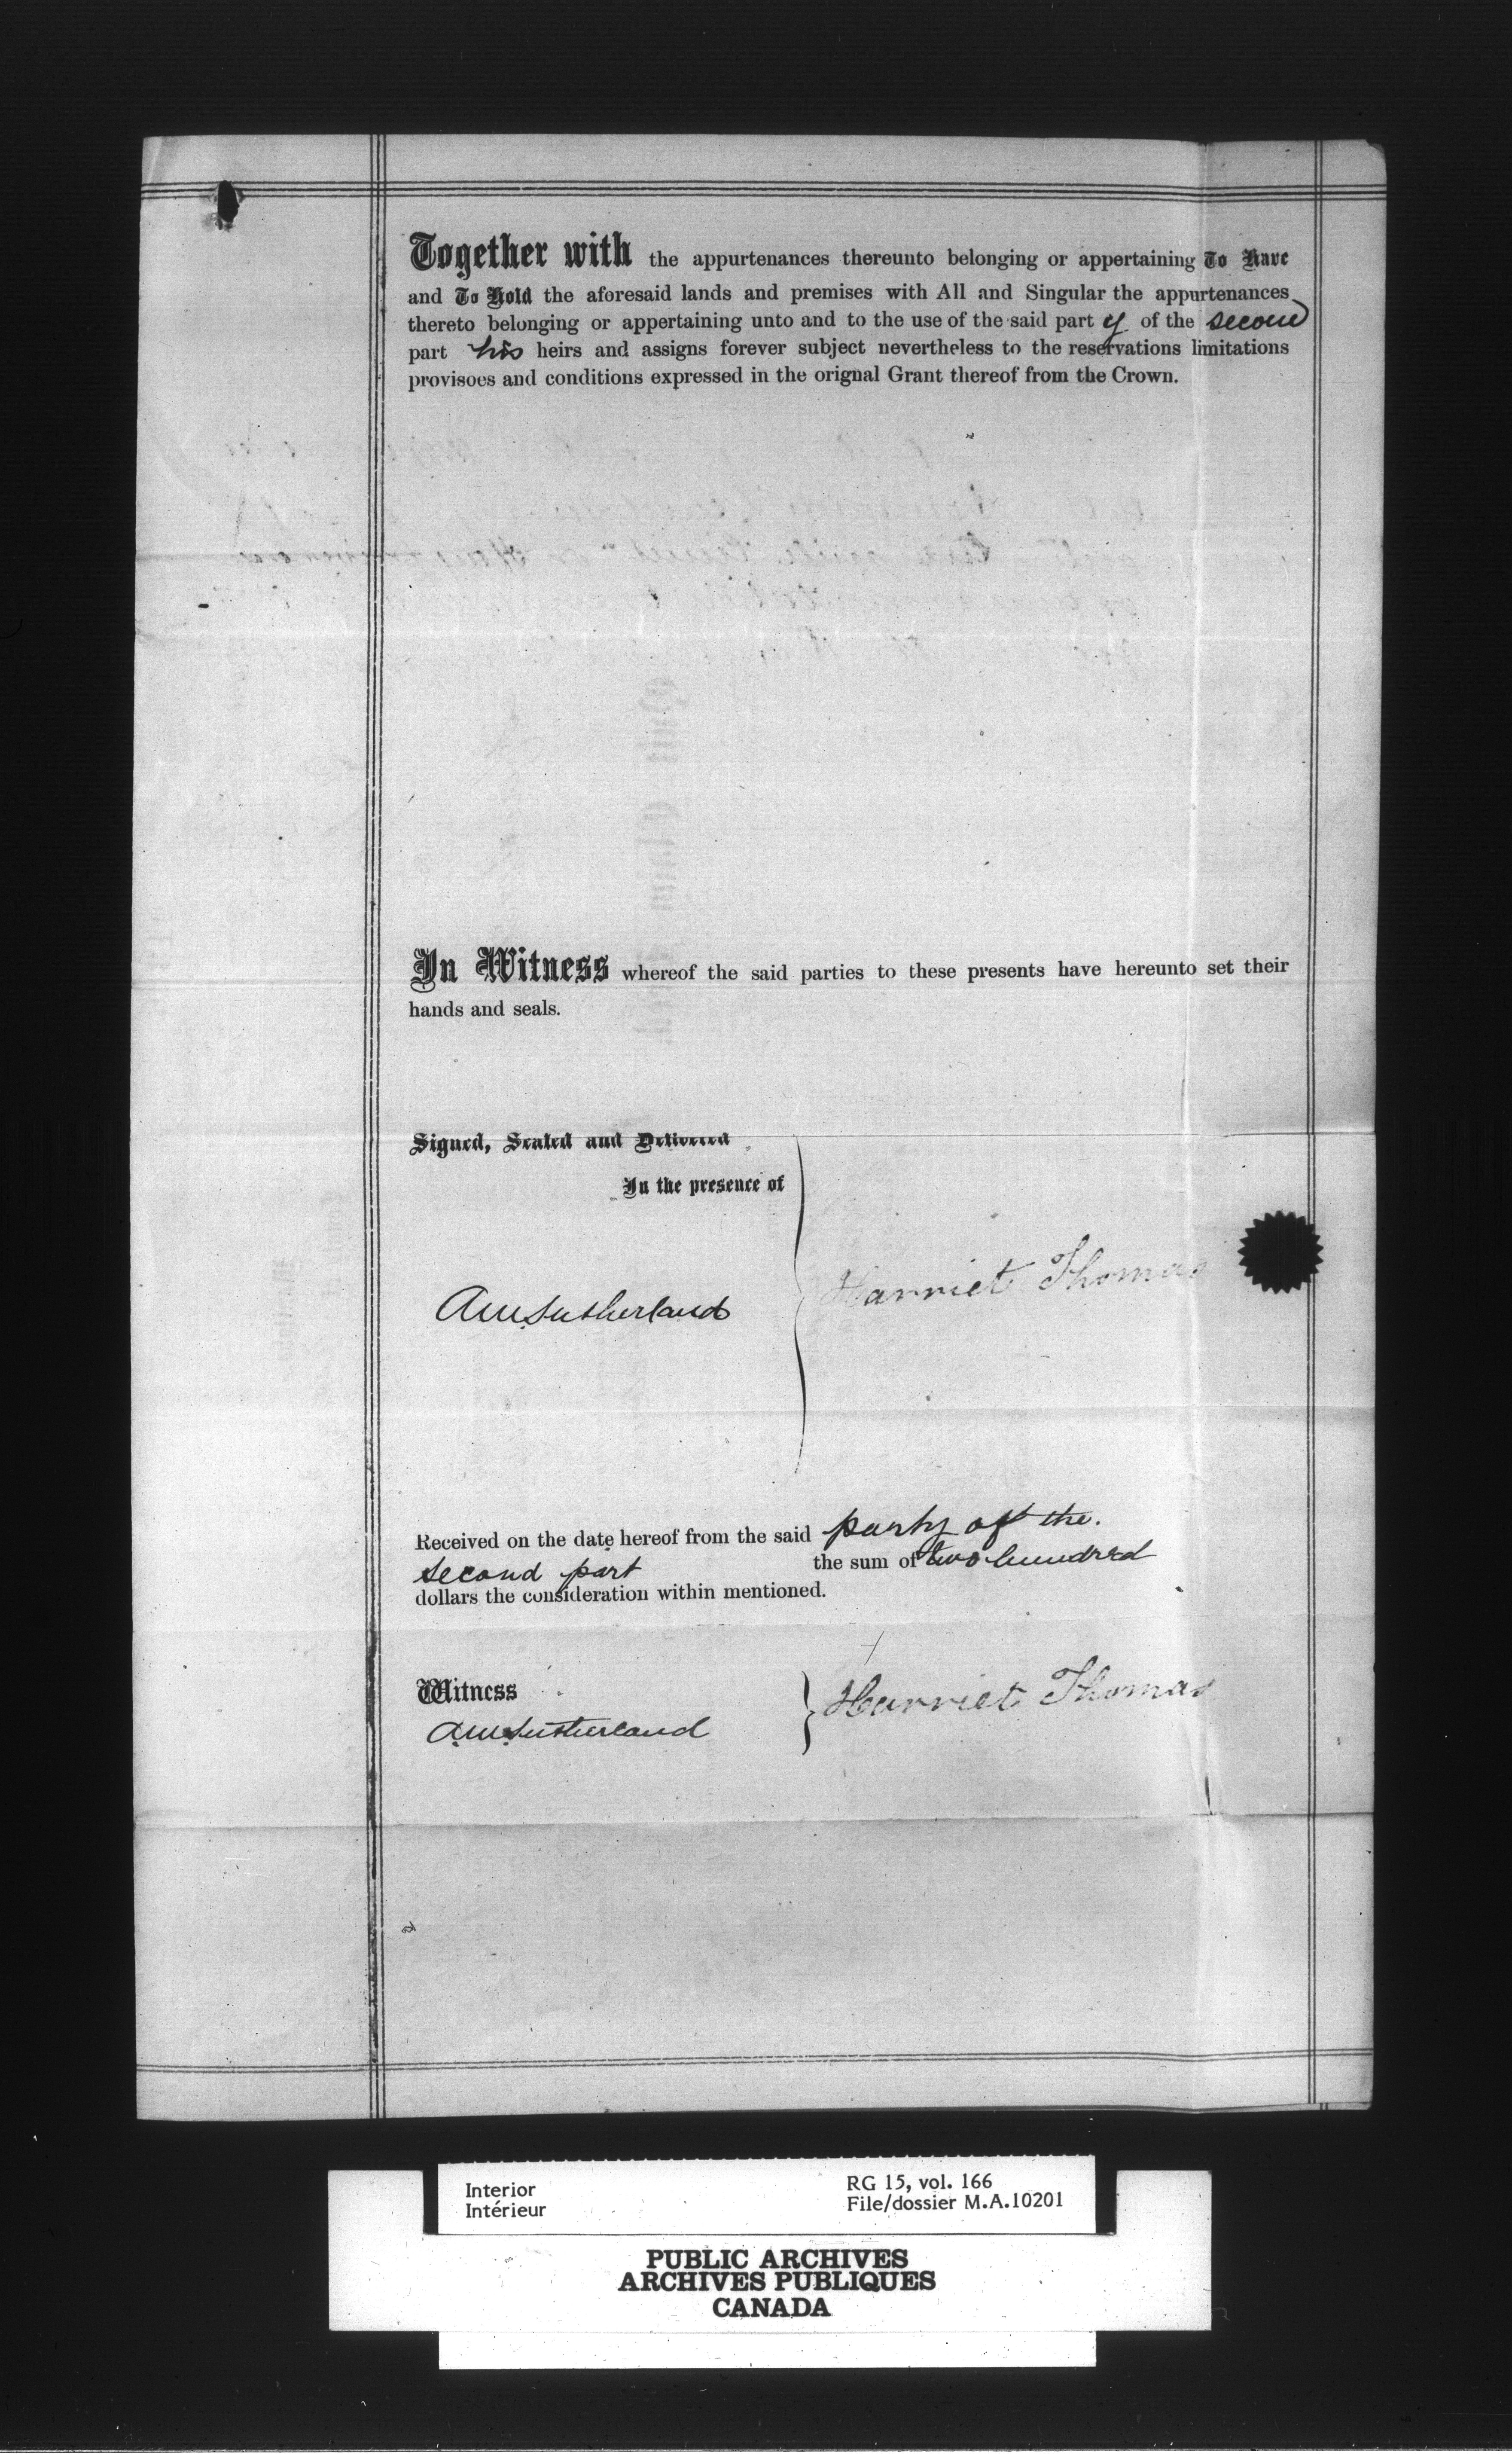 Together with the appurtenances thereunto belonging or appertaining To Have
and To Hold the aforesaid lands and premises with All and Singular the appurtenances
thereto belonging or appertaining unto and to the use of the said part y of the second
part his heirs and assigns forever subject nevertheless to the reservations limitations
provisoes and conditions expressed in the orignal Grant thereof from the Crown.
In Witness whereof the said parties to these presents have hereunto set their
hands and seals.
Signed, Sealed and Delivered
In the presence of
A.M. Sutherland
Harriet Thomas
Received on the date hereof from the said party of the
second part the sum of two hundred
dollars the consideration within mentioned.
Witness
A.M. Sutherland
Harriet Thomas
Interior
Intérieur
RG 15, vol. 166
File/dossier M.A.10201
PUBLIC ARCHIVES
ARCHIVES PUBLIQUES
CANADA